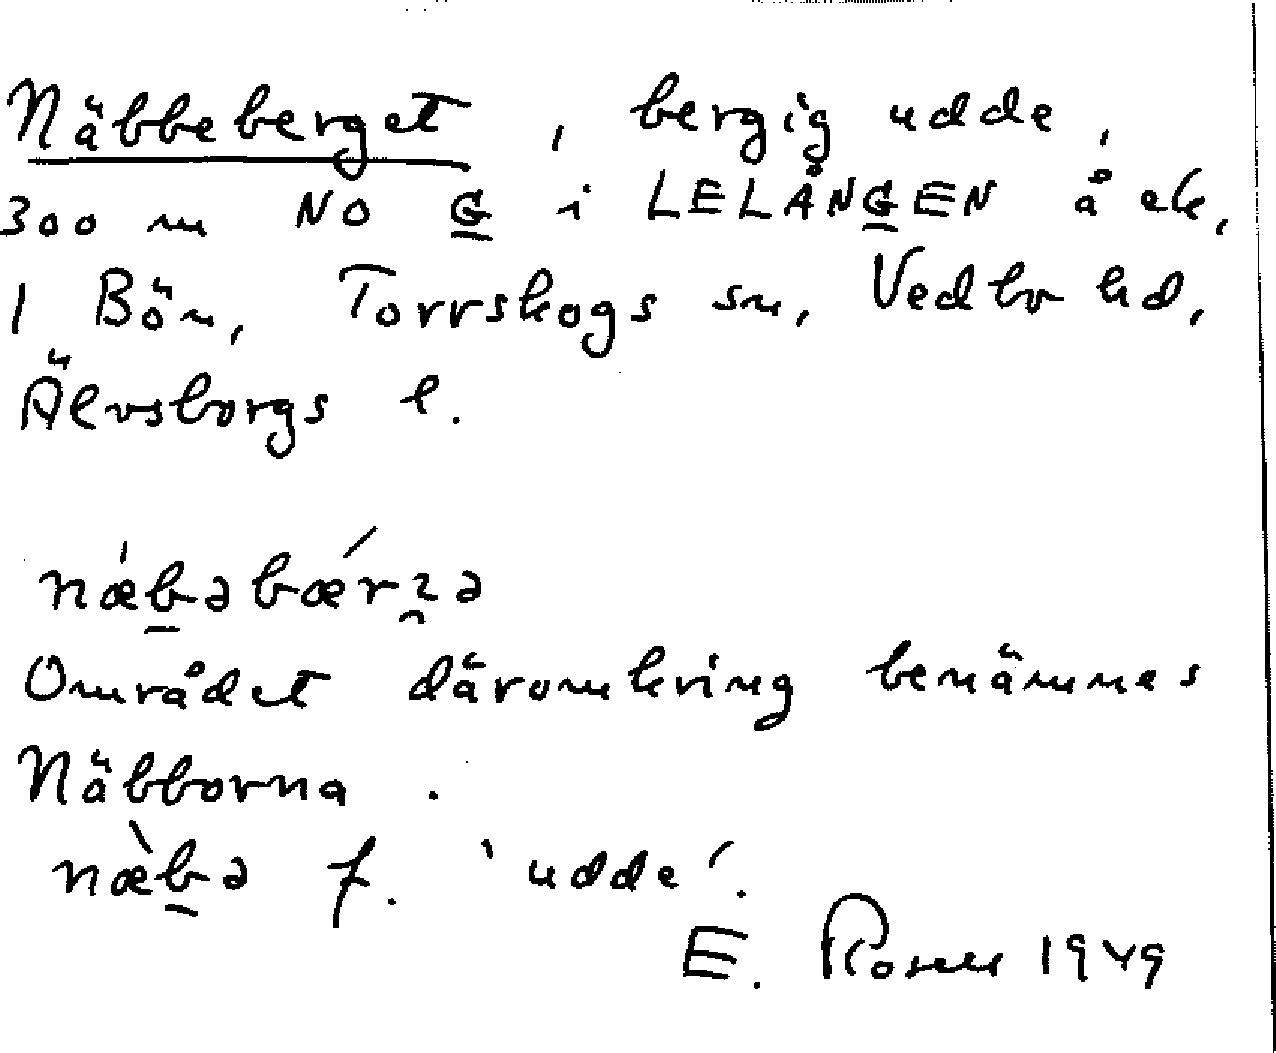 Näbbeberget, bergig udde,
300 m NO G i LELÅNGEN å ek,
1 Bön, Torrskogs sn, Vedbo hd,
Älvsborgs l.
næ̀b̲əbǽrʒə
Området däromkring benämnes
Näbborna.
næ̀b̲ə f. 'udde'.
E. Rosell 1949